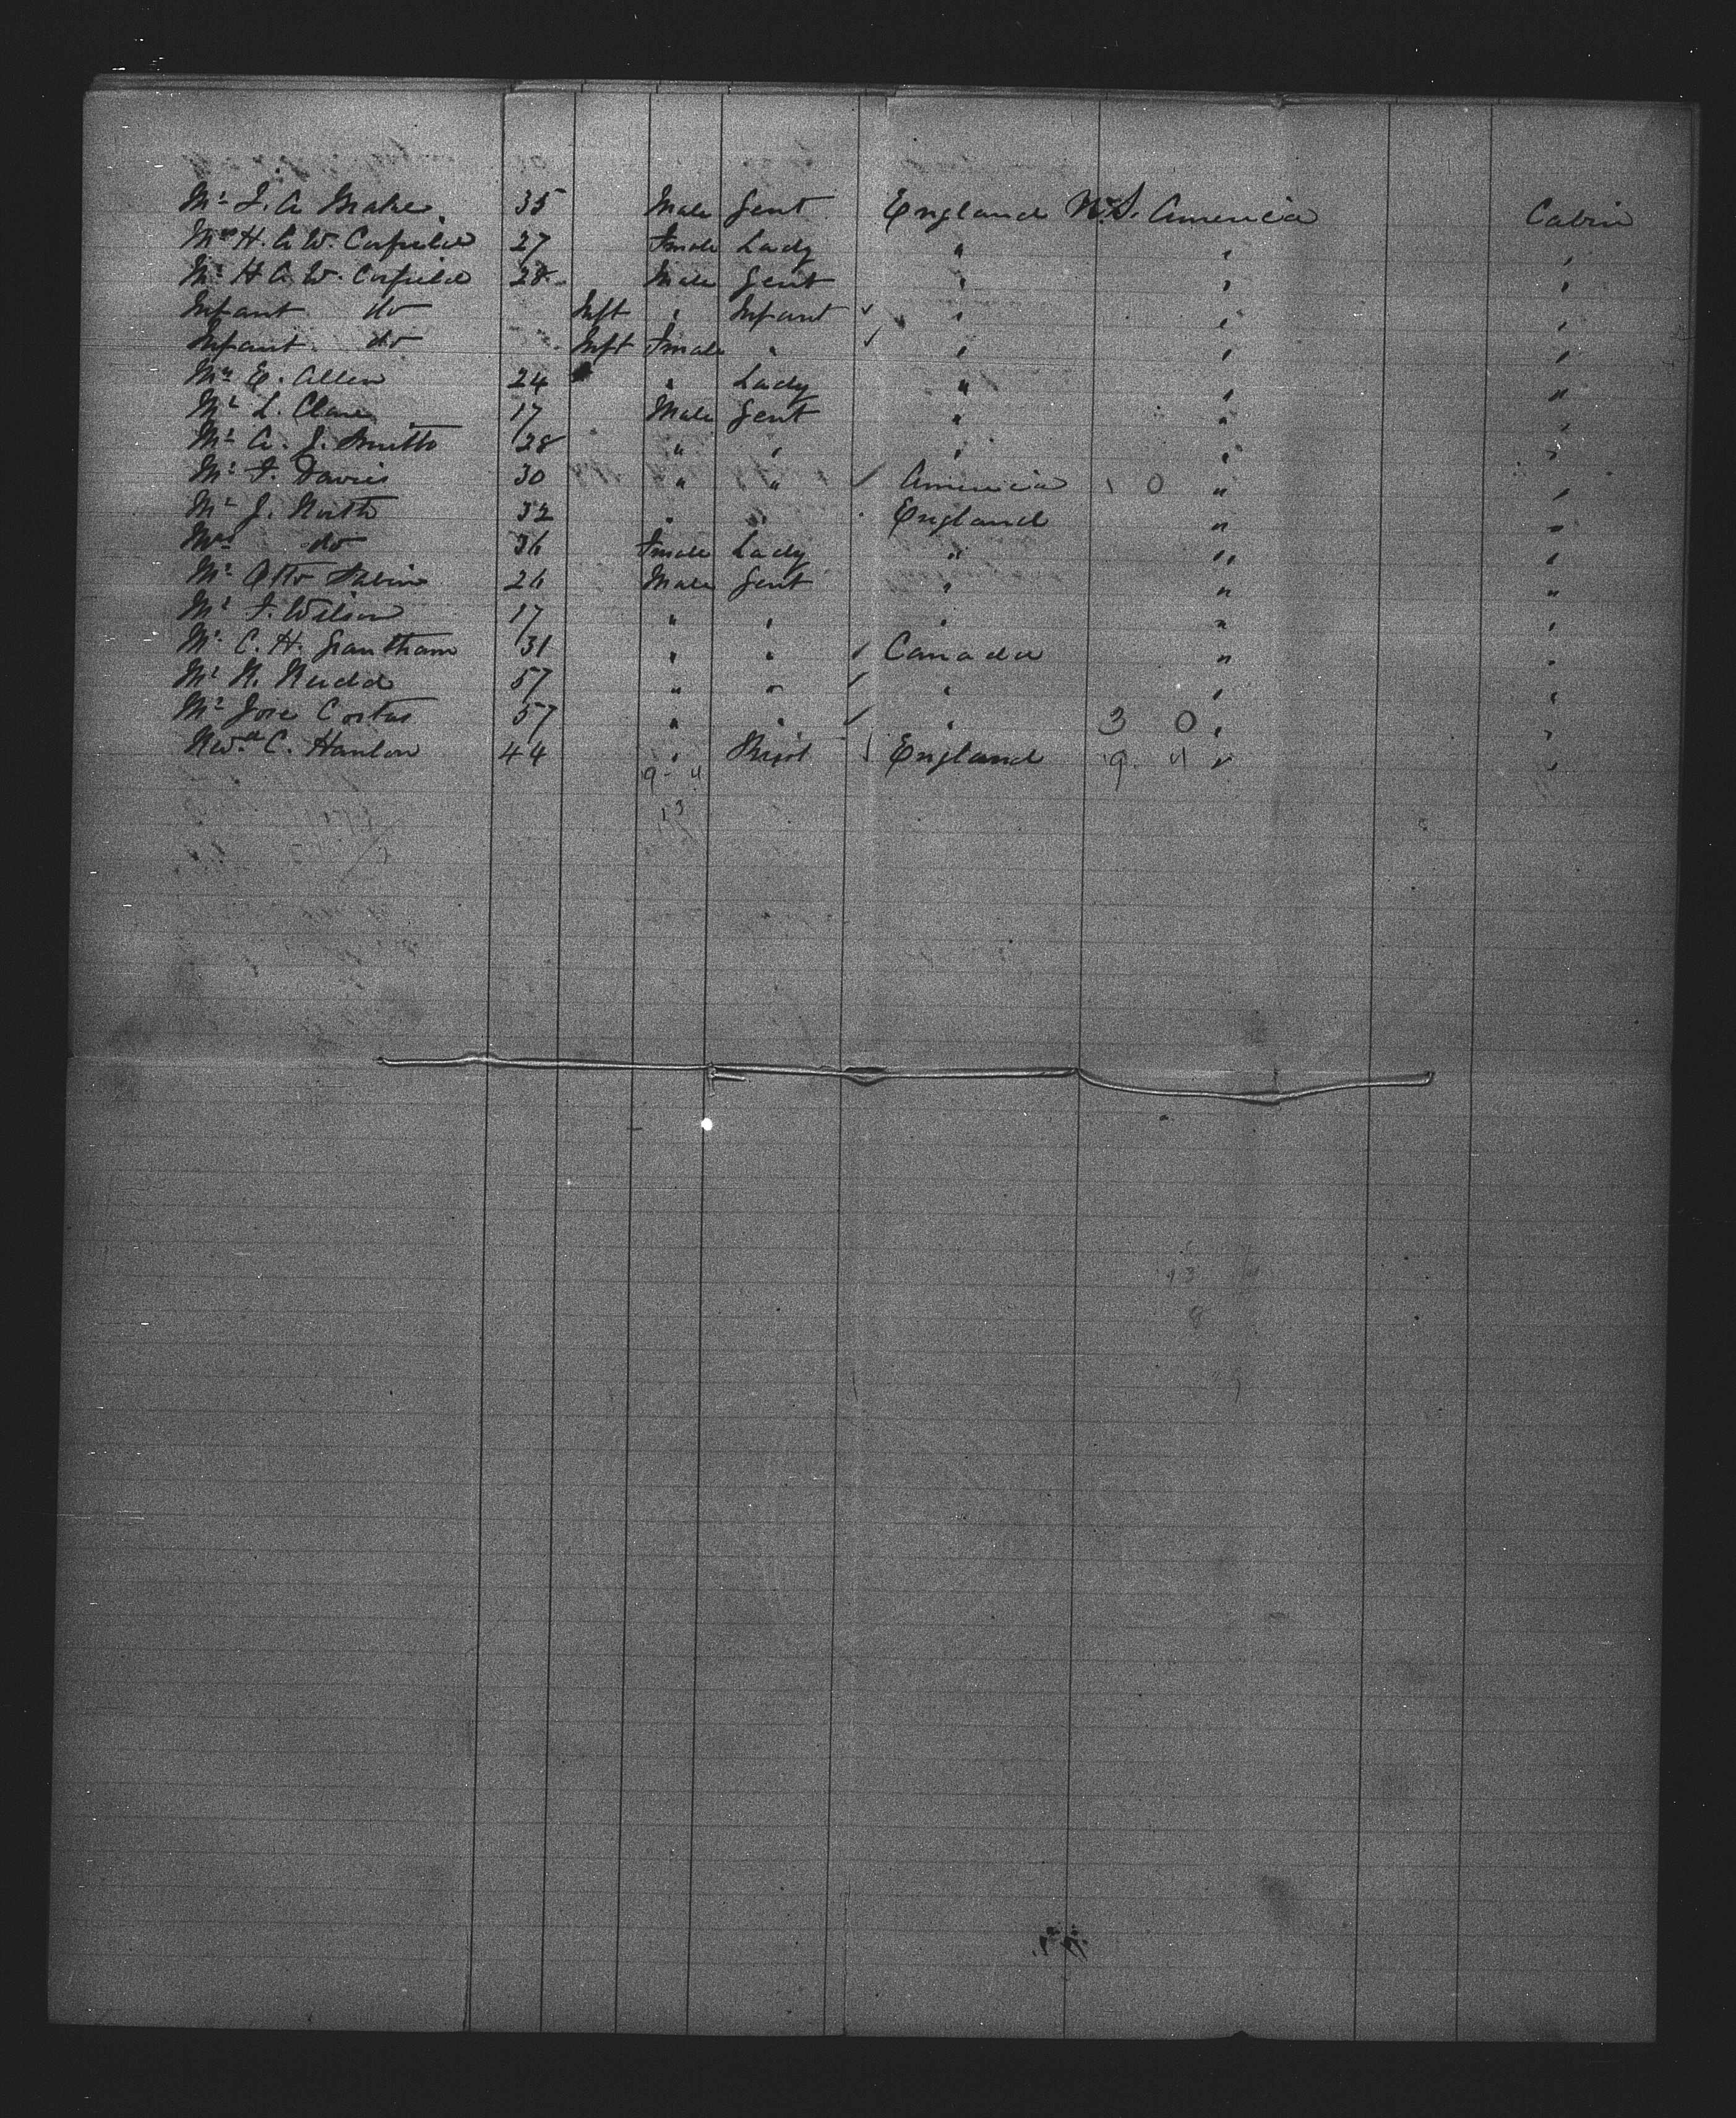 Mr. J. A. Make 35 Male Gent England U.S. America Cabin
Mrs H. A. W. Corfield 27 Female Lady " " "
Mr. H. A. W. Corfield 28 Male Gent " " "
Infant do Inft " Infant ✓ " " "
Infant do Inft Female " ✓ " " "
Mrs E. Allen 24 " Lady " " "
Mr. L. Clare 17 Male Gent " " "
Mr. A. J. Smith 28 " " " " "
Mr. F. Davies 30 " " ✓ America 1 0 " "
Mr. J. North 32 " " England " "
Mrs do 36 Female Lady " " "
Mr. Otto Sabin 26 Male Gent " " "
Mr. F. Wilson 17 " " " " "
Mr. C. H. Grantham 31 " " ✓ Canada " "
Mr. R. Rudd 57 " " ✓ " " "
Mr. Jose Cortas 57 " " ✓ " 3 0 " "
Revd. C. Hanlon 44 " Priest ✓ England 9 4 " "
9 - 4
13
13
8